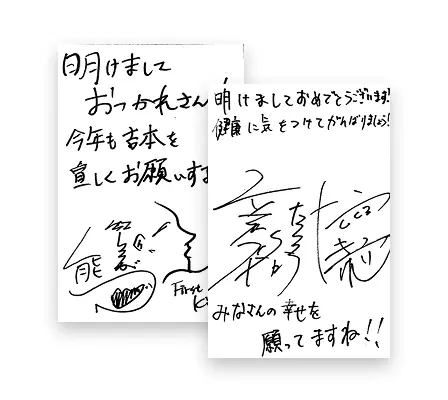 明けまして
おつかれさん
今年も吉本を
宜しくお願いす
First
K
明けましておめでとうございます!
健康に気をつけてがんばりましょう!
みなさんの幸せを
願ってますね!!